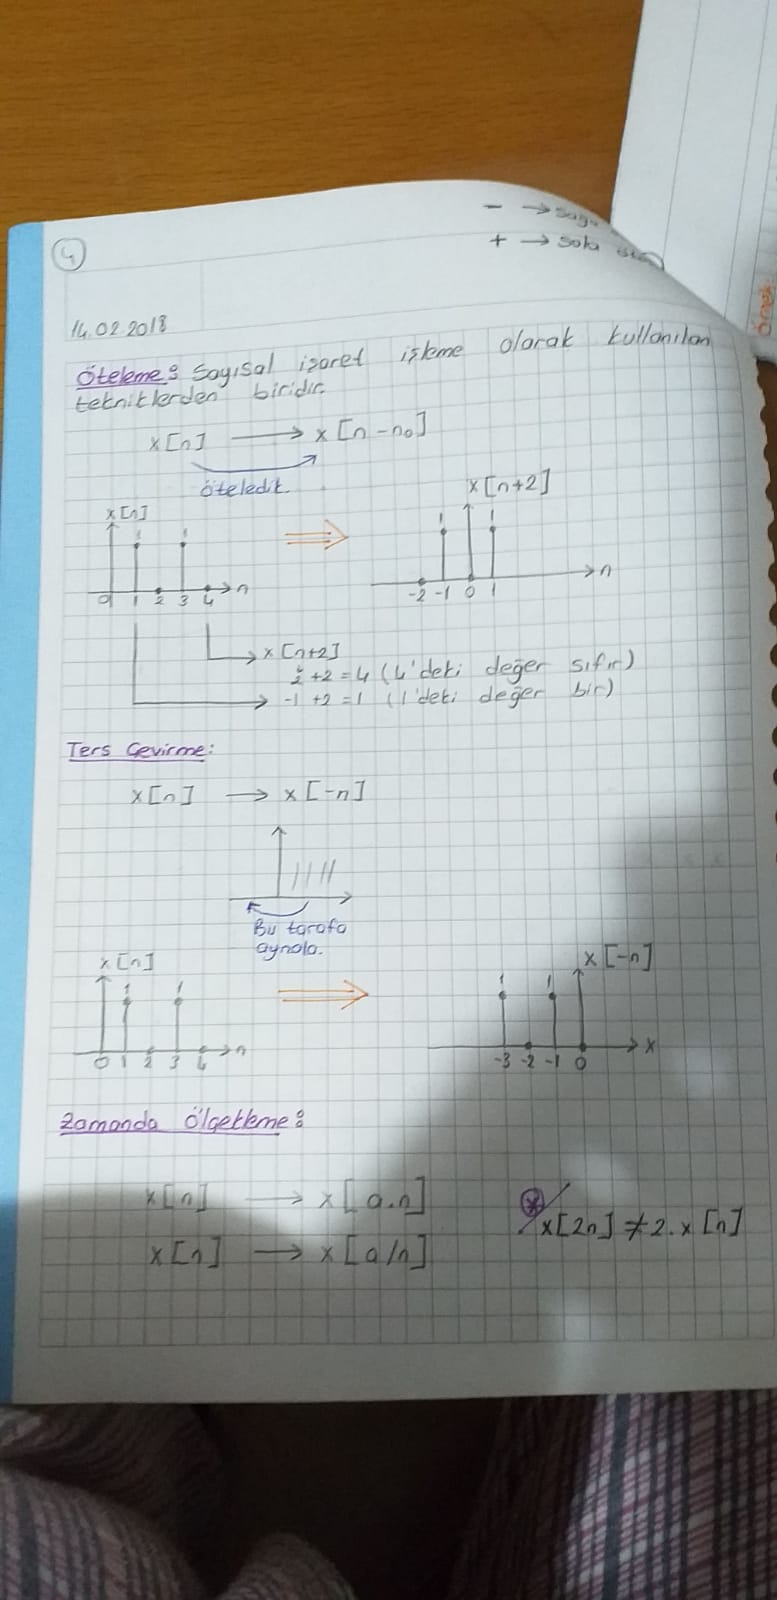 - → Sağa
+ → Sola
4
14.02.2018
Öteleme: Sayısal işaret işleme olarak kullanılan
tekniklerden biridir.
x[n] → x[n-n₀]
öteledik.
x[n]
x[n+2]
1 1
1 1
0 1 2 3 4 n
-2 -1 0 1 n
x[n+2]
2+2=4 (4'deki değer sıfır)
-1+2=1 (1'deki değer bir)
Ters Çevirme:
x[n] → x[-n]
Bu tarafa
aynala.
x[n]
x[-n]
1 1
1 1
0 1 2 3 4 n
-3 -2 -1 0 x
Zamanda Ölçekleme:
x[n] → x[a.n]
x[n] → x[a/n]
* x[2n] ≠ 2.x[n]